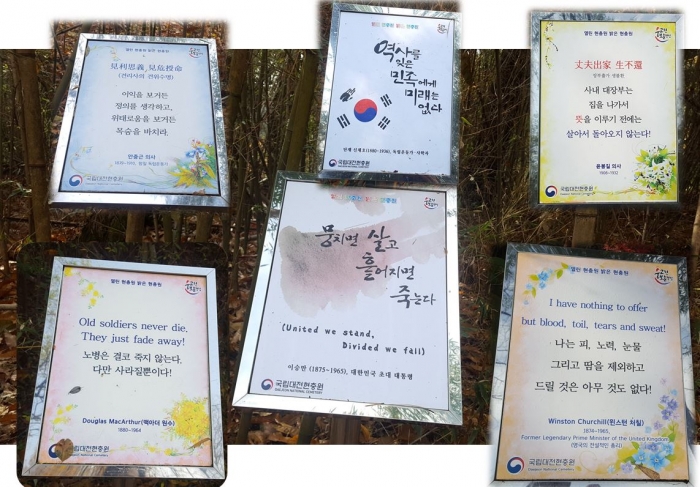 열린 현충원 밝은 현충원
見利思義 見危授命
(견리사의 견위수명)
이익을 보거든
정의를 생각하고,
위태로움을 보거든
목숨을 바치라.
안중근 의사
국립대전현충원
열린 현충원 밝은 현충원
역사를
잊은
민족에게
미래는
없다
단재 신채호(1880~1936), 독립운동가·사학자
국립대전현충원
열린 현충원 밝은 현충원
丈夫出家 生不還
장부출가 생불환
사내 대장부는
집을 나가서
뜻을 이루기 전에는
살아서 돌아오지 않는다!
윤봉길 의사
1908~1932
국립대전현충원
열린 현충원 밝은 현충원
Old soldiers never die.
They just fade away!
노병은 결코 죽지 않는다.
다만 사라질뿐이다!
Douglas MacArthur(맥아더 원수)
국립대전현충원
뭉치면 살고
흩어지면
죽는다
(United we stand,
Divided we fall)
이승만 (1875~1965), 대한민국 초대 대통령
국립대전현충원
DAEJEON NATIONAL CEMETERY
열린 현충원 밝은 현충원
I have nothing to offer
but blood, toil, tears and sweat!
나는 피, 노력, 눈물
그리고 땀을 제외하고
드릴 것은 아무 것도 없다!
Winston Churchill(윈스턴 처칠)
1874~1965,
Former Legendary Prime Minister of the United Kingdom
(영국의 전설적인 총리)
국립대전현충원